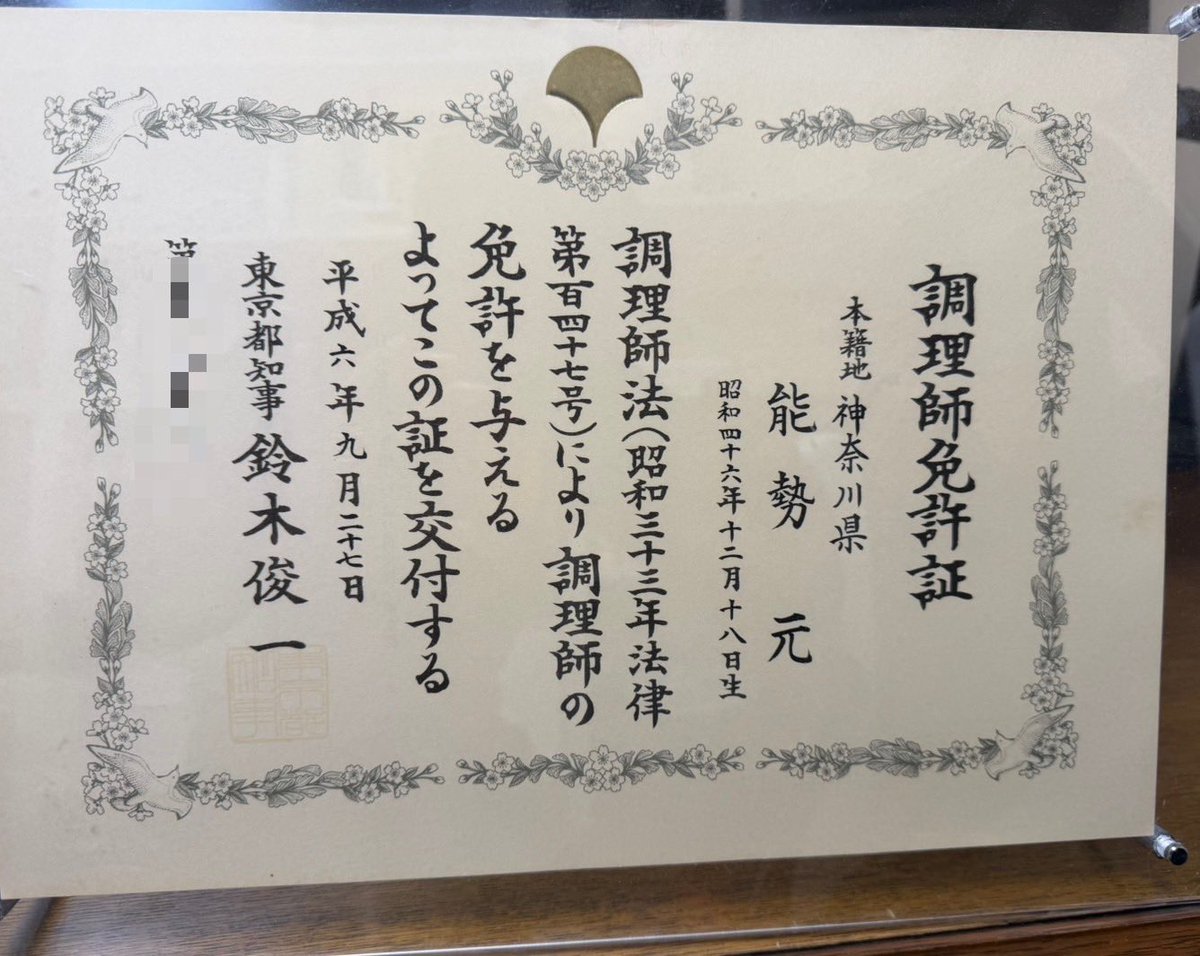 調理師免許証
本籍地 神奈川県
能勢 元
昭和四十六年十二月十八日生
調理師法(昭和三十三年法律
第百四十七号)により調理師の
免許を与える
よってこの証を交付する
平成六年九月二十七日
東京都知事 鈴木俊一
第